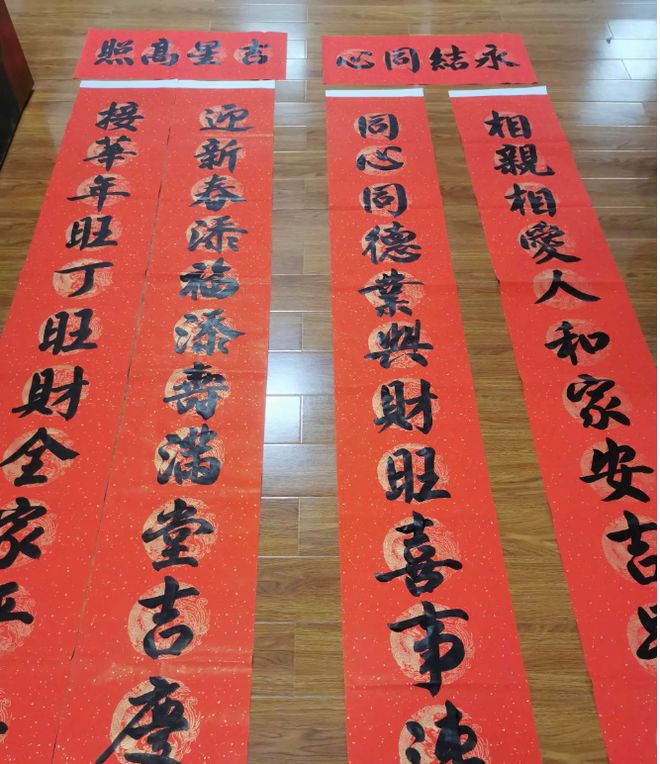 永結同心
相親相愛人和家安吉
同心同德業興財旺喜事連
吉星高照
迎新春添福添壽滿堂吉慶
接華年旺丁旺財全家平